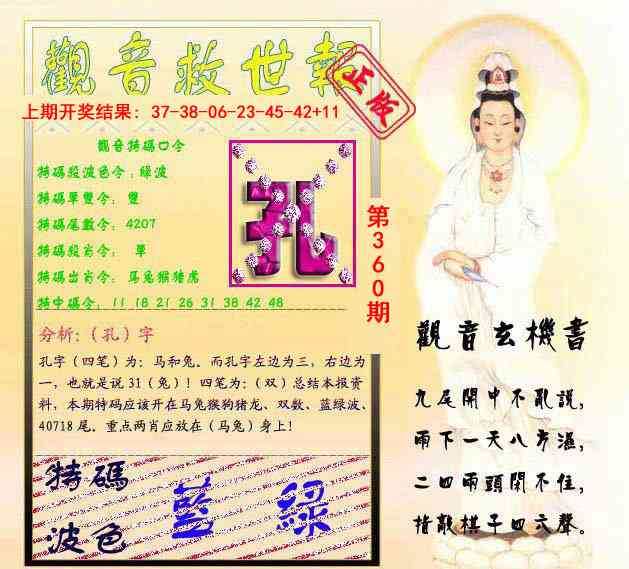 觀音救世報
正版
上期开奖结果：37-38-06-23-45-42+11
觀音特碼口令
特碼段波色令：绿波
特碼單雙令：雙
特碼尾數令：4207
特碼段肖令：單
特碼出肖令：馬兔猴豬虎
特中碼令：11 18 21 26 31 38 42 48
孔
第360期
分析:（孔）字
孔字（四笔）为：马和兔。而孔字左边为三，右边为
一，也就是说 31（兔）！四笔为：（双）总结本报资
料，本期特码应该开在马兔猴狗猪龙、双数、蓝绿波、
40718 尾。重点两肖应放在（马兔）身上！
特碼
波色
藍 綠
觀音玄機書
九尾開中不亂説，
雨下一天八方濕，
二四兩頭関不住，
指敲棋子四六聲。